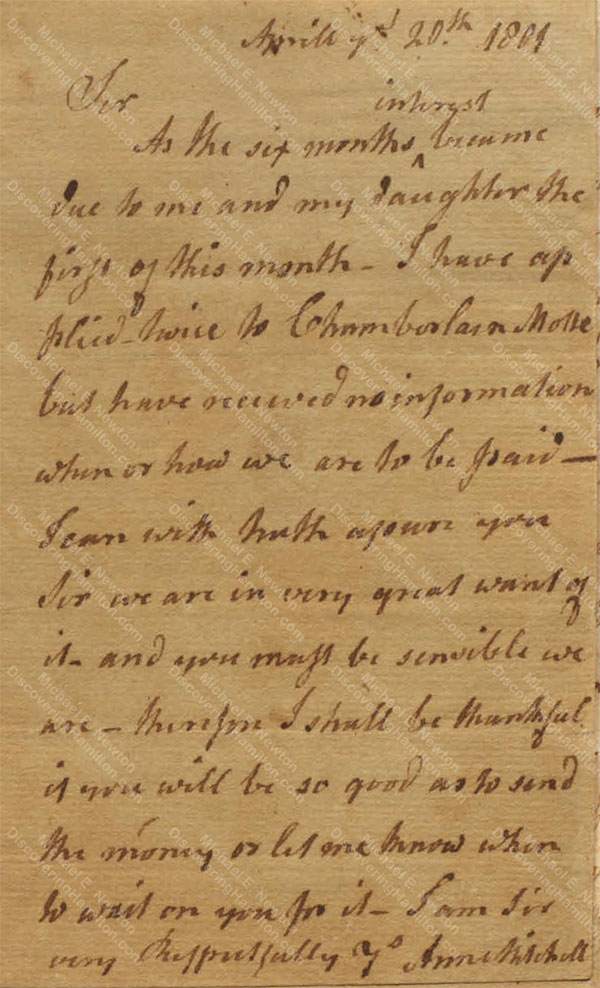 Aprill yᵉ 20.th 1801
Sir
interest
As the six months ‸ became
due to me and my daughter the
first of this month - I have ap
plied - twice to Chamberlain Motte
but have received no information
when or how we are to be paid —
I can with truth assure you
Sir we are in very great want of
it - and you must be sensible we
are - therefore I shall be thankful
if you will be so good as to send
the money or let me know when
to wait on you for it - I am Sir
very Respectfully Yˢ Anne Mitchell
Michael E. Newton
DiscoveringHamilton.com